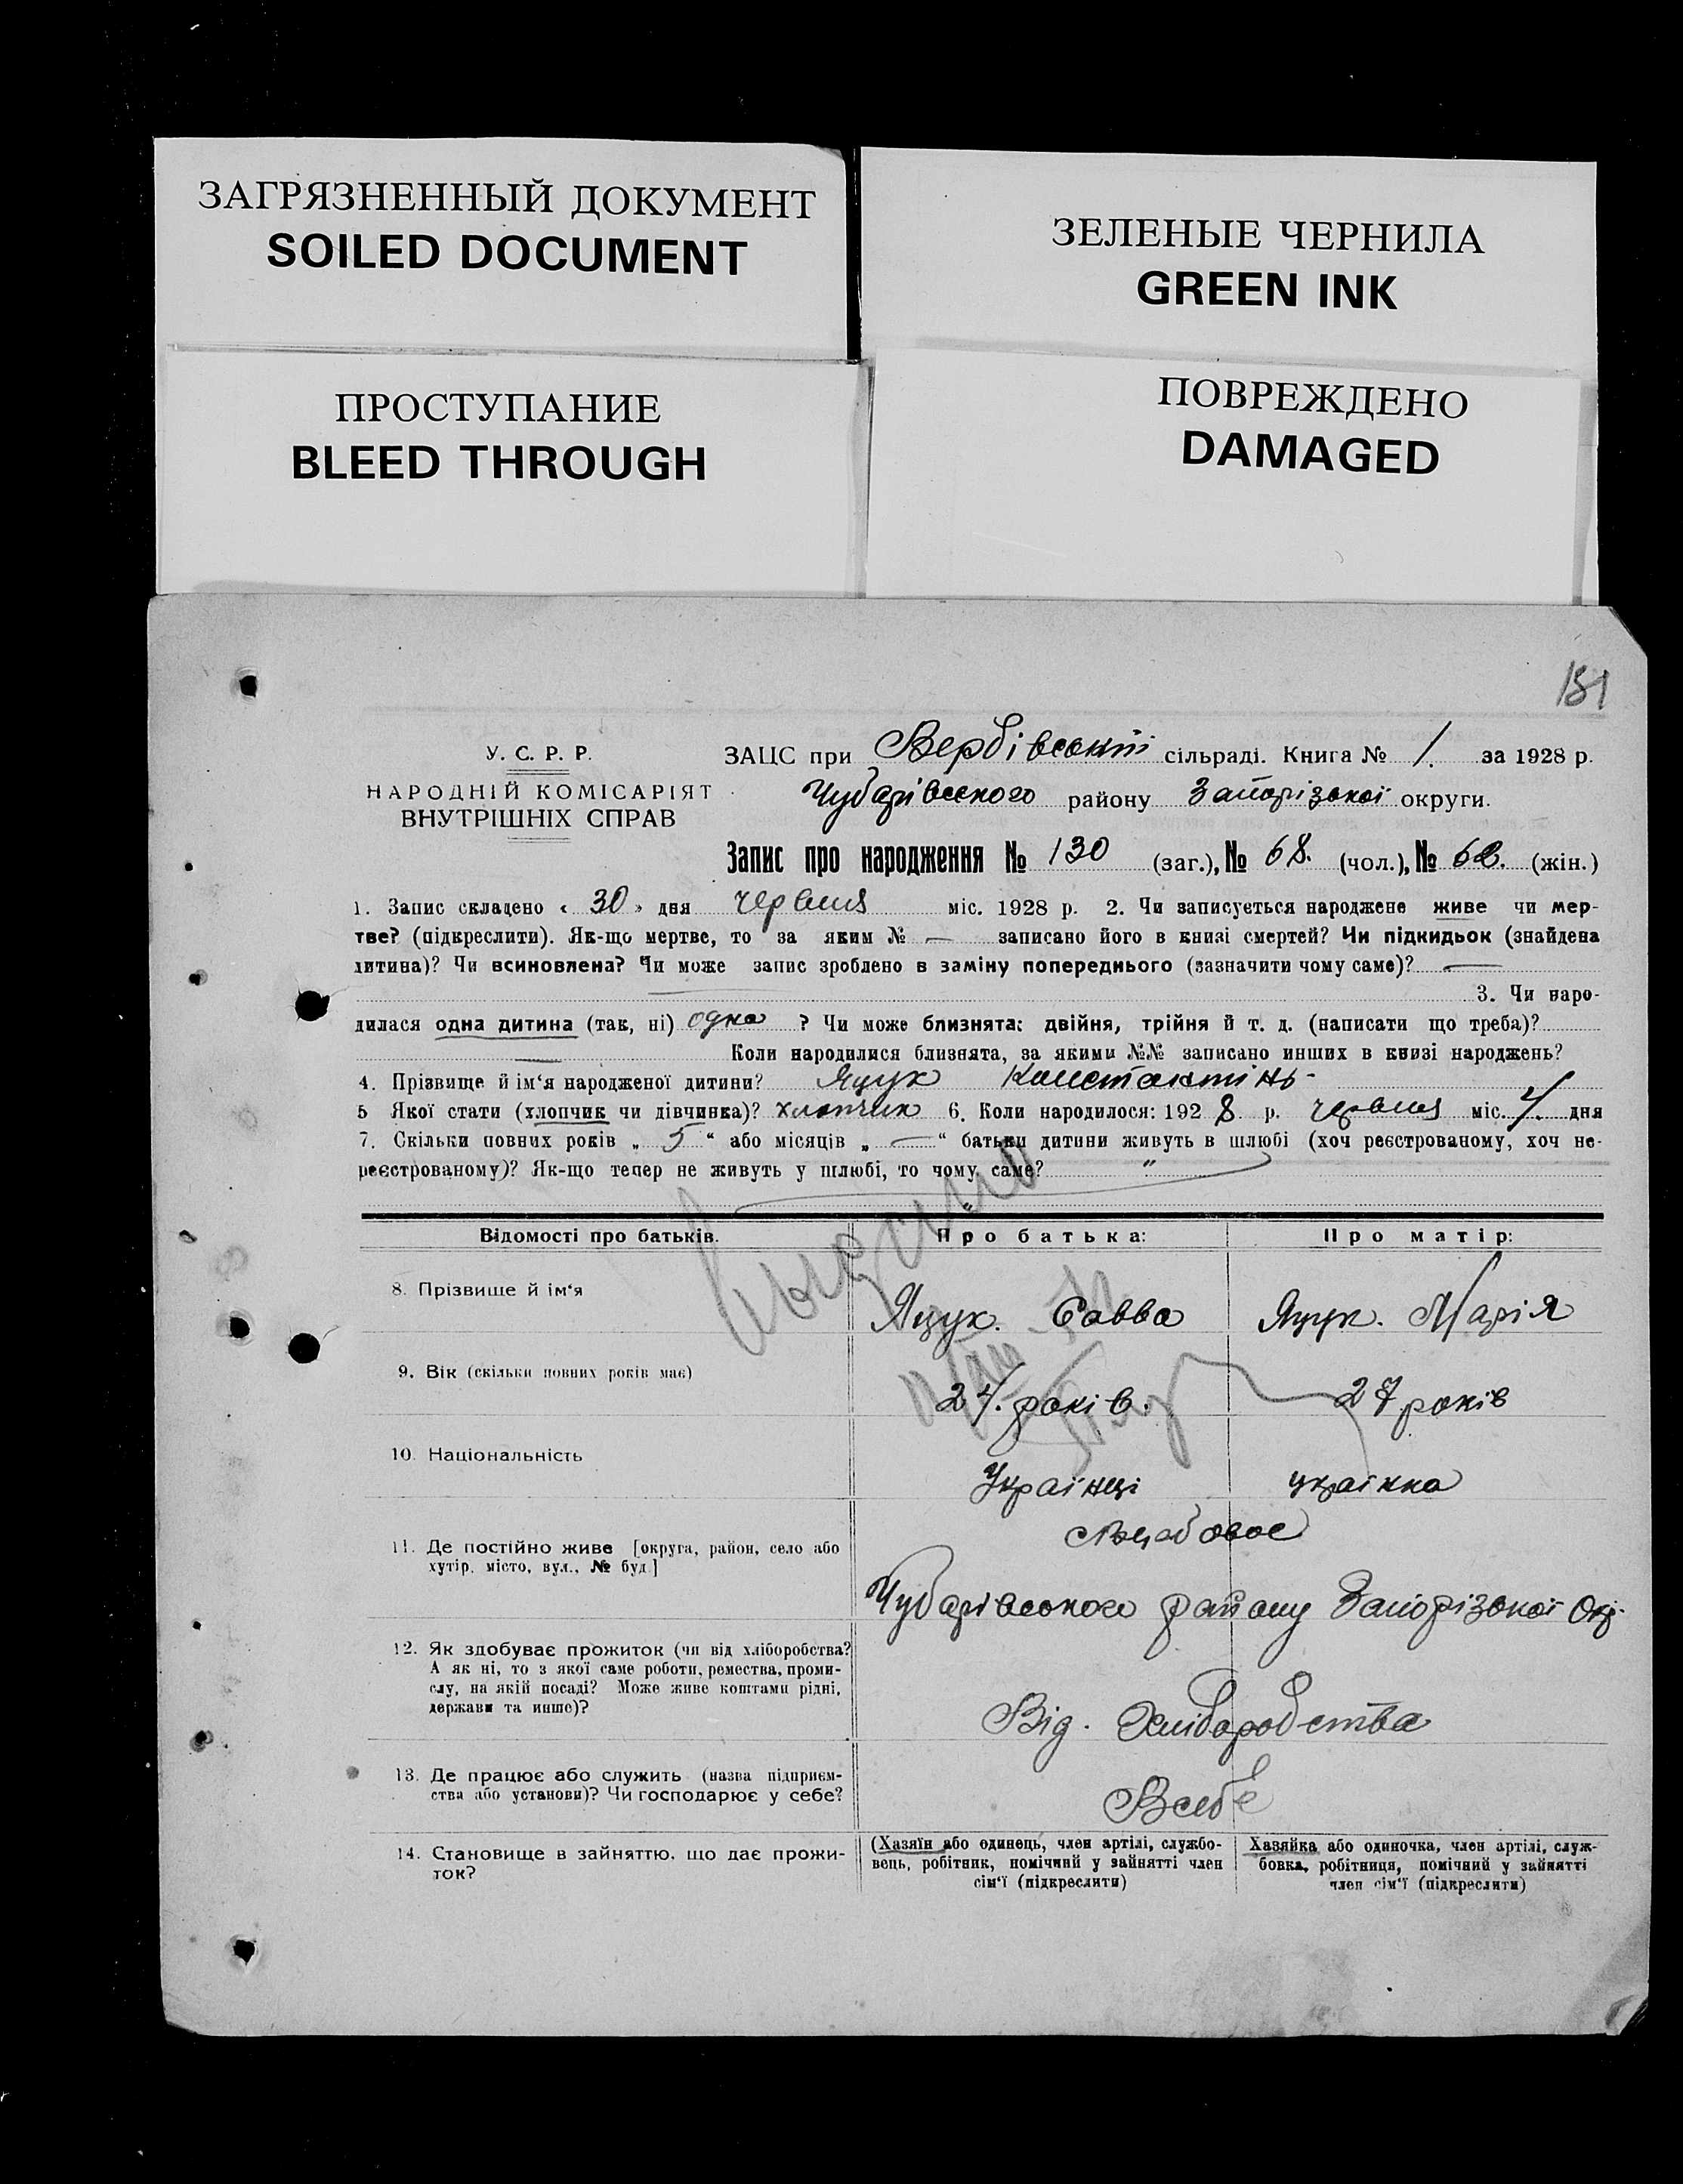 ЗАГРЯЗНЕННЫЙ ДОКУМЕНТ
SOILED DOCUMENT
ЗЕЛЕНЫЕ ЧЕРНИЛА
GREEN INK
ПРОСТУПАНИЕ
BLEED THROUGH
ПОВРЕЖДЕНО
DAMAGED
181
У. С. Р. Р.
НАРОДНІЙ КОМІСАРІЯТ
ВНУТРІШНІХ СПРАВ
ЗАЦС при Вербівській сільраді. Книга № 1. за 1928 р.
Чубарівського району Запорізької округи.
Запис про народження № 130 (заг.), № 68. (чол.), № 62. (жін.)
1. Запис складено „ 30 „ дня червня міс. 1928 р. 2. Чи записується народжене живе чи мер-
тве? (підкреслити). Як-що мертве, то за яким № — записано його в книзі смертей? Чи підкидьок (знайдена
дитина)? Чи всиновлена? Чи може запис зроблено в заміну попереднього (зазначити чому саме)? —
3. Чи наро-
дилася одна дитина (так, ні) одна ? Чи може близнята: двійня, трійня й т. д. (написати що треба)?
— Коли народилися близнята, за якими №№ записано инших в книзі народжень?
4. Прізвище й ім‘я народженої дитини? Яцук Констянтінь
5 Якої стати (хлопчик чи дівчинка)? хлопчик 6. Коли народилося: 192 8 р. червня міс. 4. дня
7. Скільки повних років „ 5 “ або місяців „ — “ батьки дитини живуть в шлюбі (хоч реєстрованому, хоч не-
реєстрованому)? Як-що тепер не живуть у шлюбі, то чому саме? "
Відомості про батьків.
Про батька:
Про матір:
8. Прізвище й ім‘я
Яцук. Савва
Яцук. Марія
9. Вік (скільки повних років має)
24. років.
27 років
10. Національність
Українці
українка
11. Де постійно живе [округа, район, село або
хутір, місто, вул., № буд.]
Чубарівського району Запорізької Окр.
12. Як здобуває прожиток (чи від хліборобства?
А як ні, то з якої саме роботи, ремества, проми-
слу, на якій посаді? Може живе коштами рідні,
держави та инше)?
Від. Хліборобства
13. Де працює або служить (назва підприєм-
ства або установи)? Чи господарює у себе?
Всебе
14. Становище в зайняттю, що дає прожи-
ток?
(Хазяїн або одинець, член артілі, службо-
вець, робітник, помічний у зайнятті член
сім‘ї (підкреслити)
Хазяйка або одиночка, член артілі, служ-
бовка, робітниця, помічний у зайнятті
член сім‘ї (підкреслити)